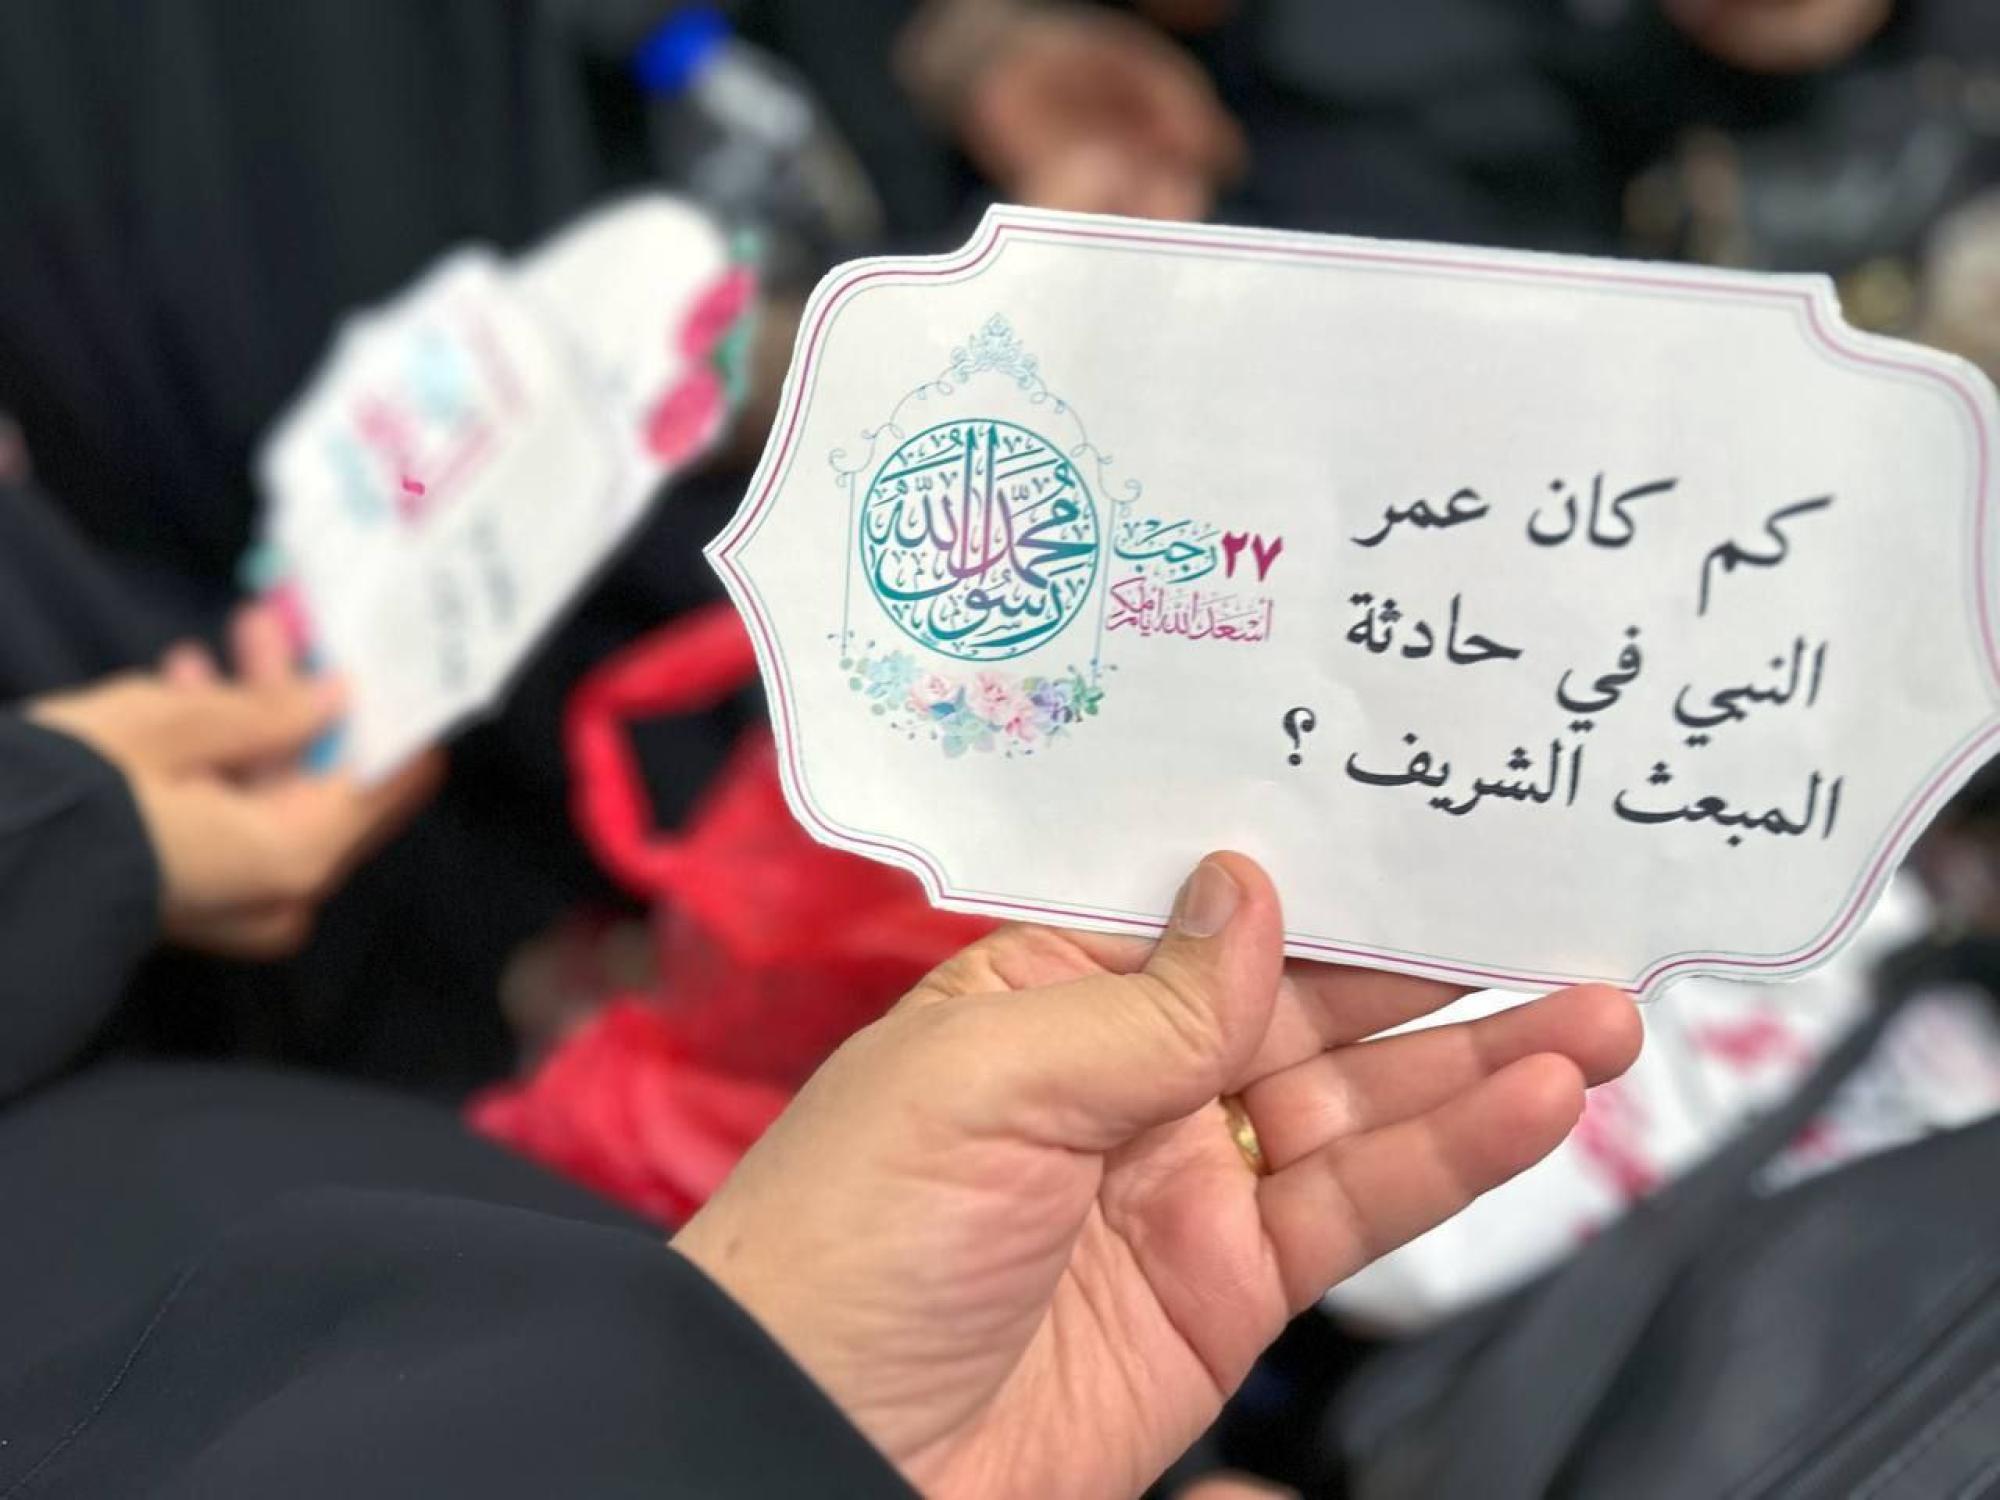 كم كان عمر
النبي في حادثة
المبعث الشريف ؟
٢٧ رجب
اسعد الله أيامكم
محمد رسول الله